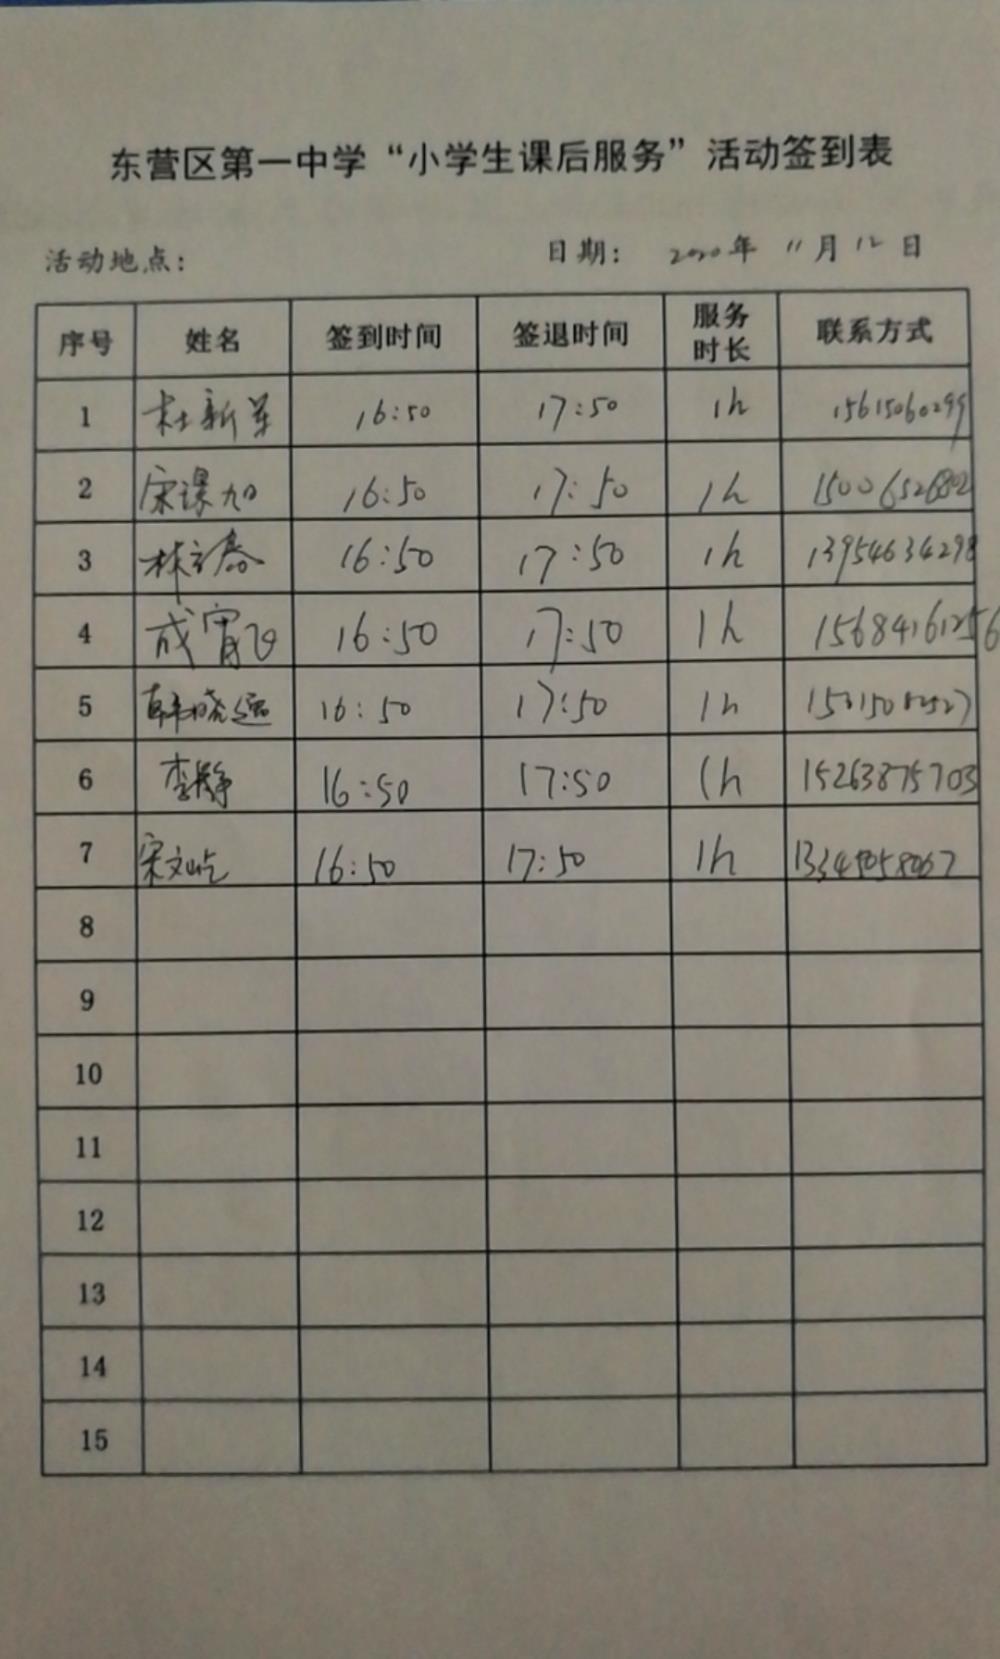 东营区第一中学“小学生课后服务”活动签到表
活动地点： 日期： 2020年 11月 12日
序号 姓名 签到时间 签退时间 服务时长 联系方式
1 杜新军 16:50 17:50 1h 15615060299
2 宋课加 16:50 17:50 1h 15006526802
3 16:50 17:50 1h 13954634298
4 成霄飞 16:50 17:50 1h 15684161256
5 韩晓运 16:50 17:50 1h
6 李静 16:50 17:50 1h 15263875703
7 宋文屹 16:50 17:50 1h 13345058067
8
9
10
11
12
13
14
15